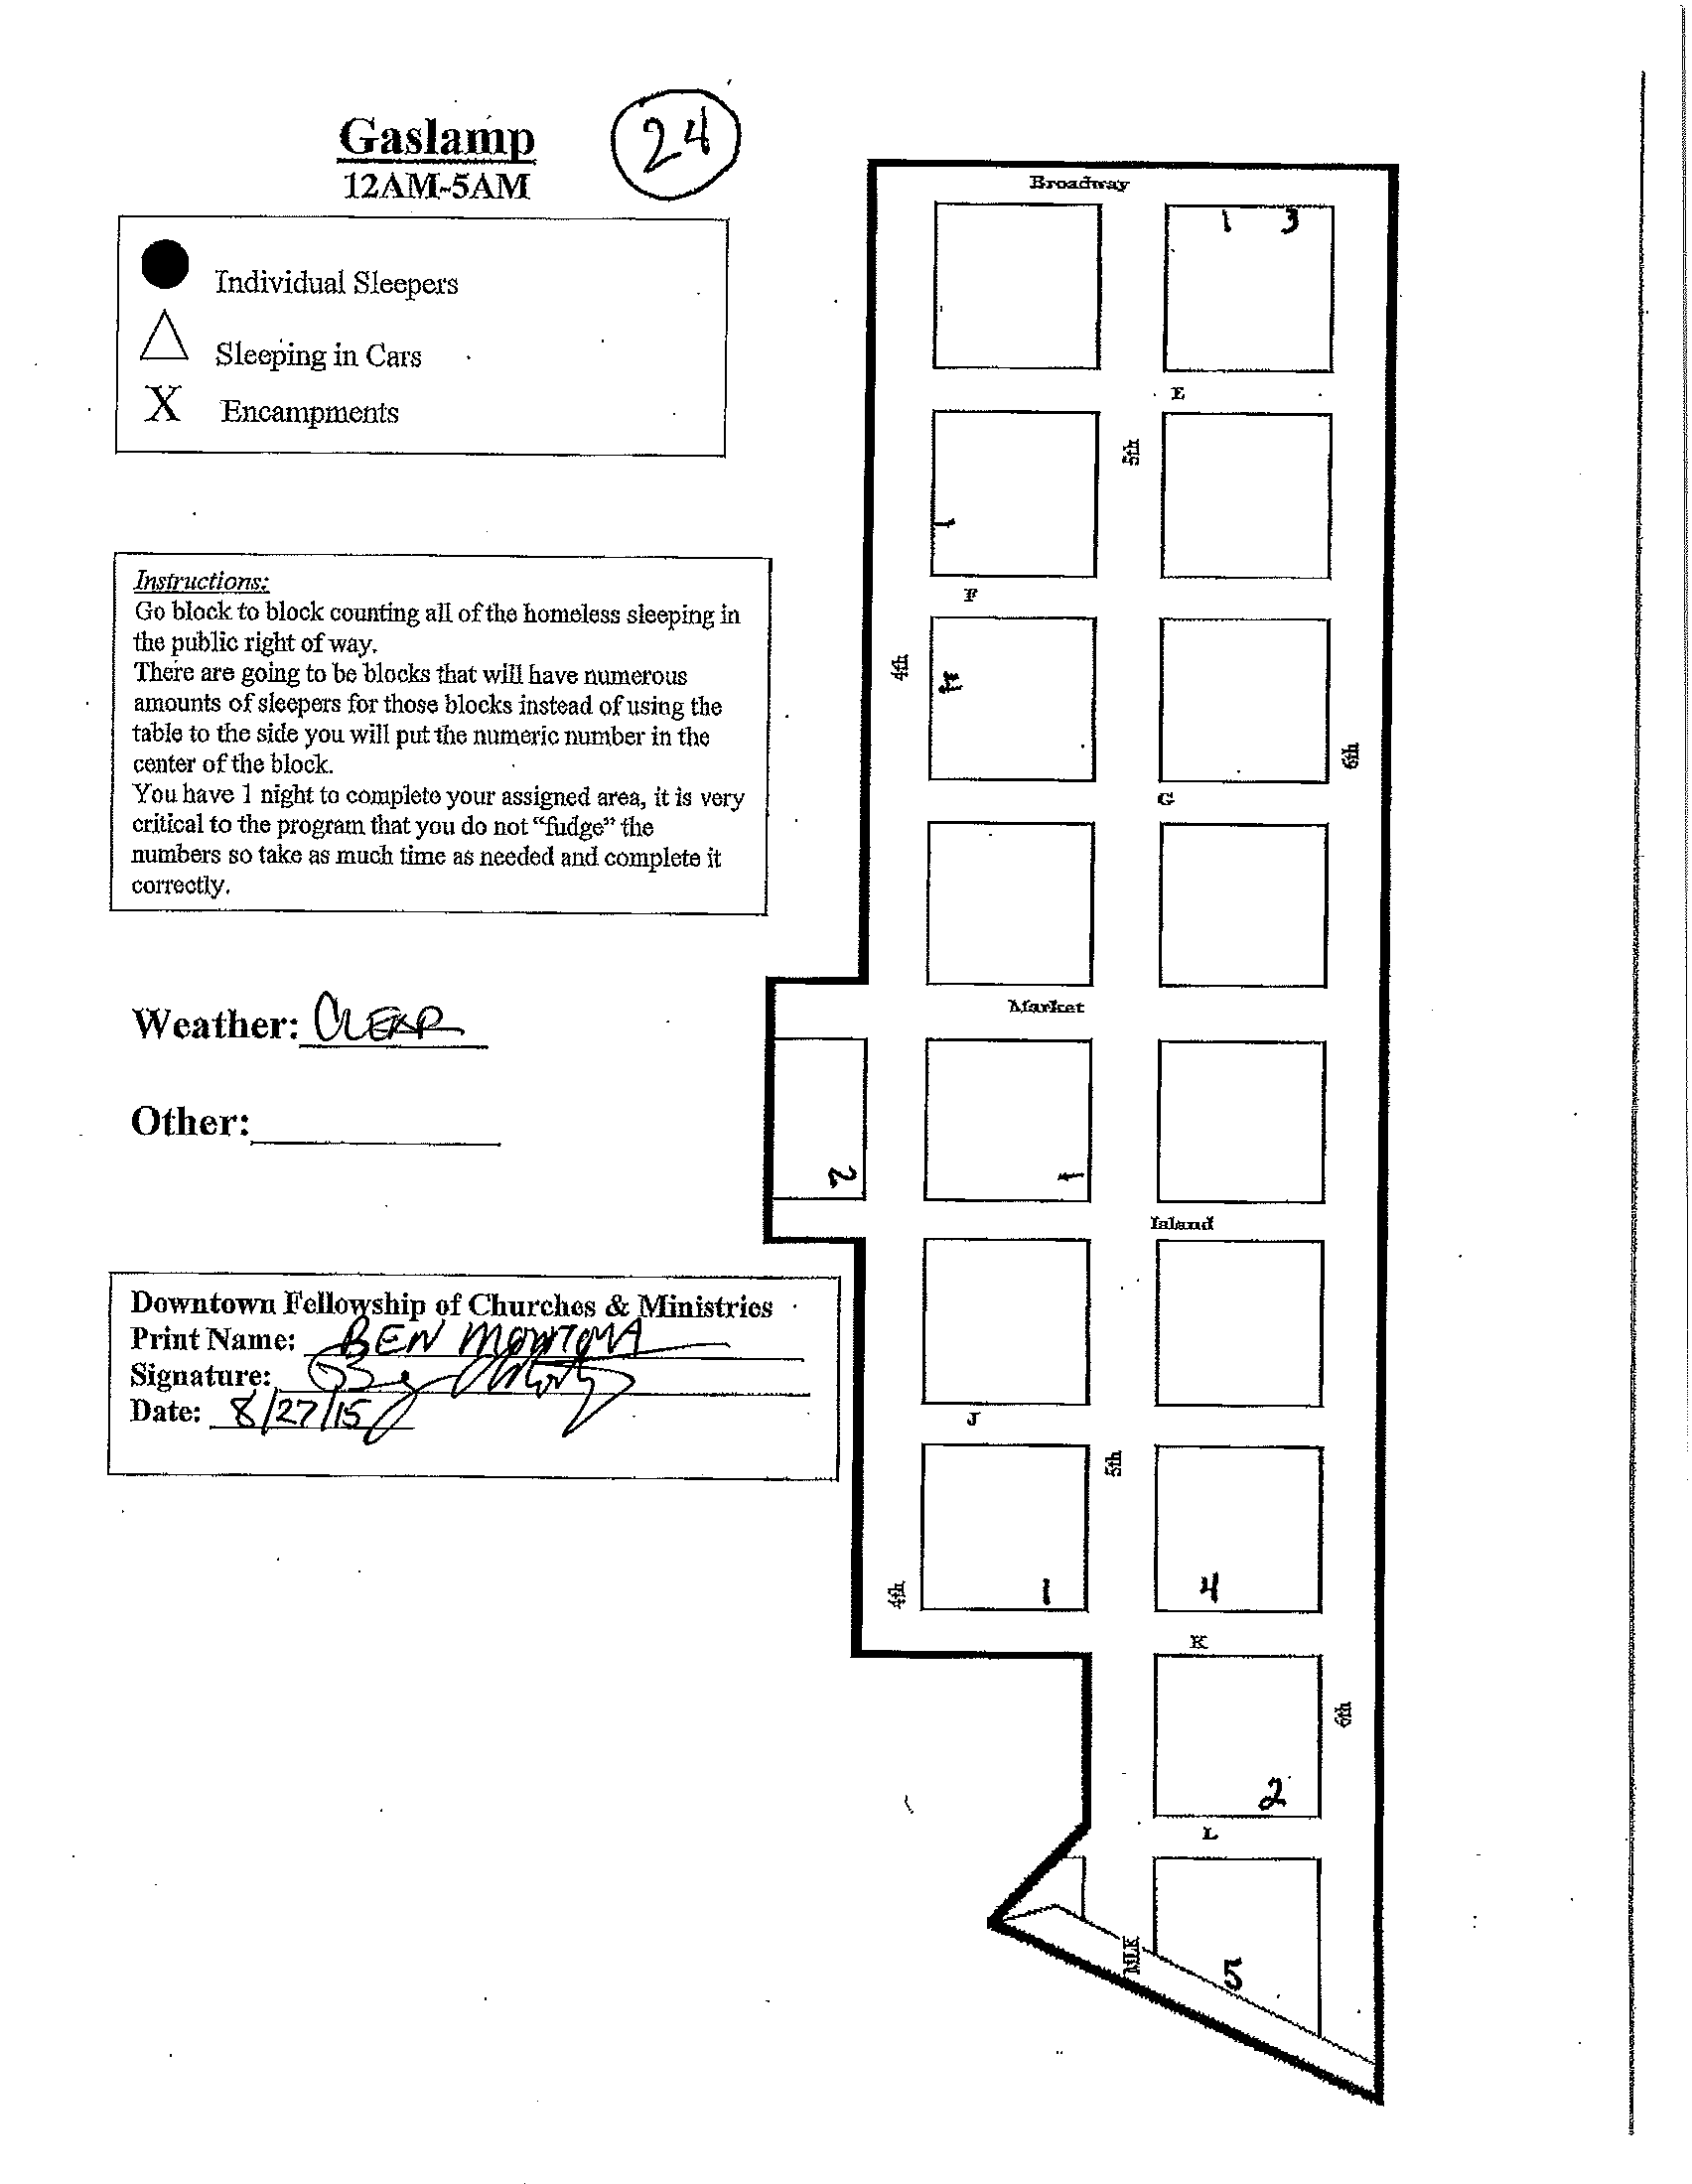 Gaslamp
24
12AM-5AM
Individual Sleepers
Sleeping in Cars
X Encampments
Instructions:
Go block to block counting all of the homeless sleeping in
the public right of way.
There are going to be blocks that will have numerous
amounts of sleepers for those blocks instead of using the
table to the side you will put the numeric number in the
center of the block.
You have 1 night to complete your assigned area, it is very
critical to the program that you do not “fudge” the
numbers so take as much time as needed and complete it
correctly.
Weather: CLEAR
Other:
Downtown Fellowship of Churches & Ministries
Print Name: BEN MONTOYA
Signature:
Date: 8/27/15
Broadway
1 3
E
5th
1
F
4th
6th
G
Market
2
1
Island
J
5th
4th
1
4
K
6th
2
L
MLK
5